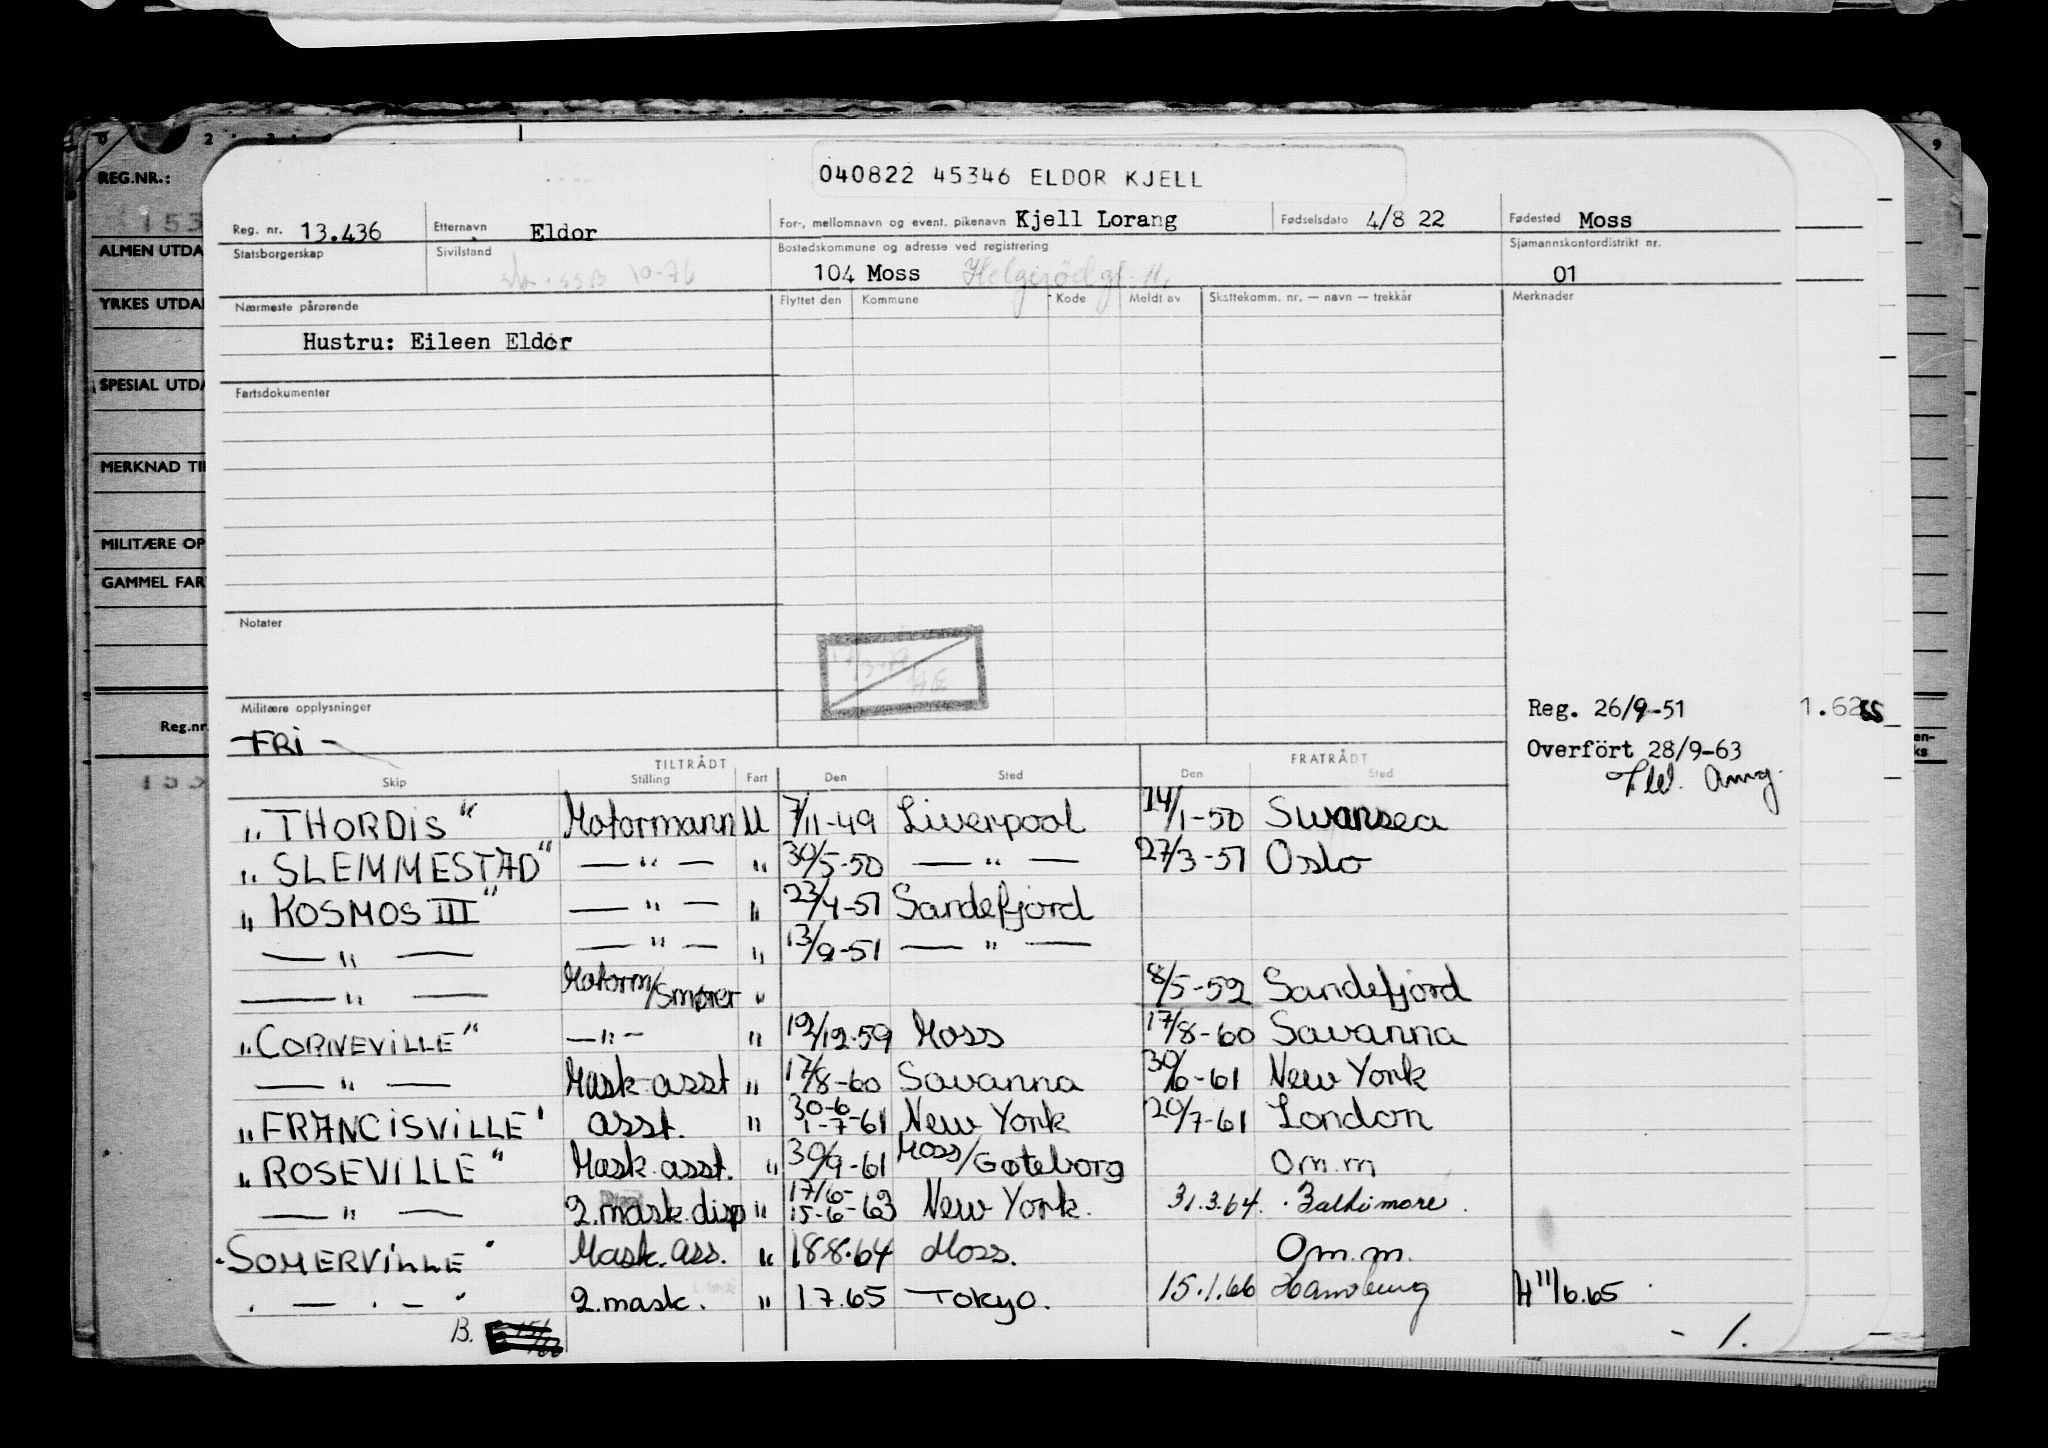 REG.NR.:
153
ALMEN UTDA
YRKES UTDA
SPESIAL UTDA
MERKNAD TI
MILITÆRE OP
GAMMEL FAR
Reg.nr
153
040822 45346 ELDOR KJELL
Reg. nr. 13.436 Etternavn Eldor For-, mellomnavn og event. pikenavn Kjell Lorang Fødselsdato 4/8 22 Fødested Moss
Statsborgerskap Sivilstand Bostedskommune og adresse ved registrering Sjømannskontordistrikt nr.
10-76 104 Moss 01
Nærmeste pårørende Flyttet den Kommune Kode Meldt av Skattekomm. nr. — navn — trekkår Merknader
Hustru: Eileen Eldor
Fartsdokumenter
Notater
Militære opplysninger Reg. 26/9-51 1.62
- FRI - Overfört 28/9-63
TILTRÅDT FRATRÅDT
Skip Stilling Fart Den Sted Den Sted
"THORDIS" Motormann U 7/11-49 Liverpool 14/1-50 Swansea
"SLEMMESTAD" — " — " 30/5-50 — " — 27/3-51 Oslo
"KOSMOS III" — " — " 23/4-51 Sandefjord
— " — — " — " 13/9-51 — " —
— " — Motorm/Smører " 8/5-52 Sandefjord
"CORNEVILLE" — " — " 19/12-59 Moss 17/8-60 Savanna
— " — Mask-asst " 17/8-60 Savanna 30/6-61 New York
"FRANCISVILLE" asst. " 30-6 1-7-61 New York 20/7-61 London
"ROSEVILLE" Mask.asst. " 30/9-61 Moss/Gøteborg Om.m
— " — 2.mask.disp " 17/6- 15-6-63 New York. 31.3.64. Baltimore.
"SOMERVILLE" Mask.ass. " 18.8.64 Moss. Om.m.
" — " — " 2.mask. " 1.7.65 Tokyo. 15.1.66 Hamburg H 11/6.65
B.
- 1.